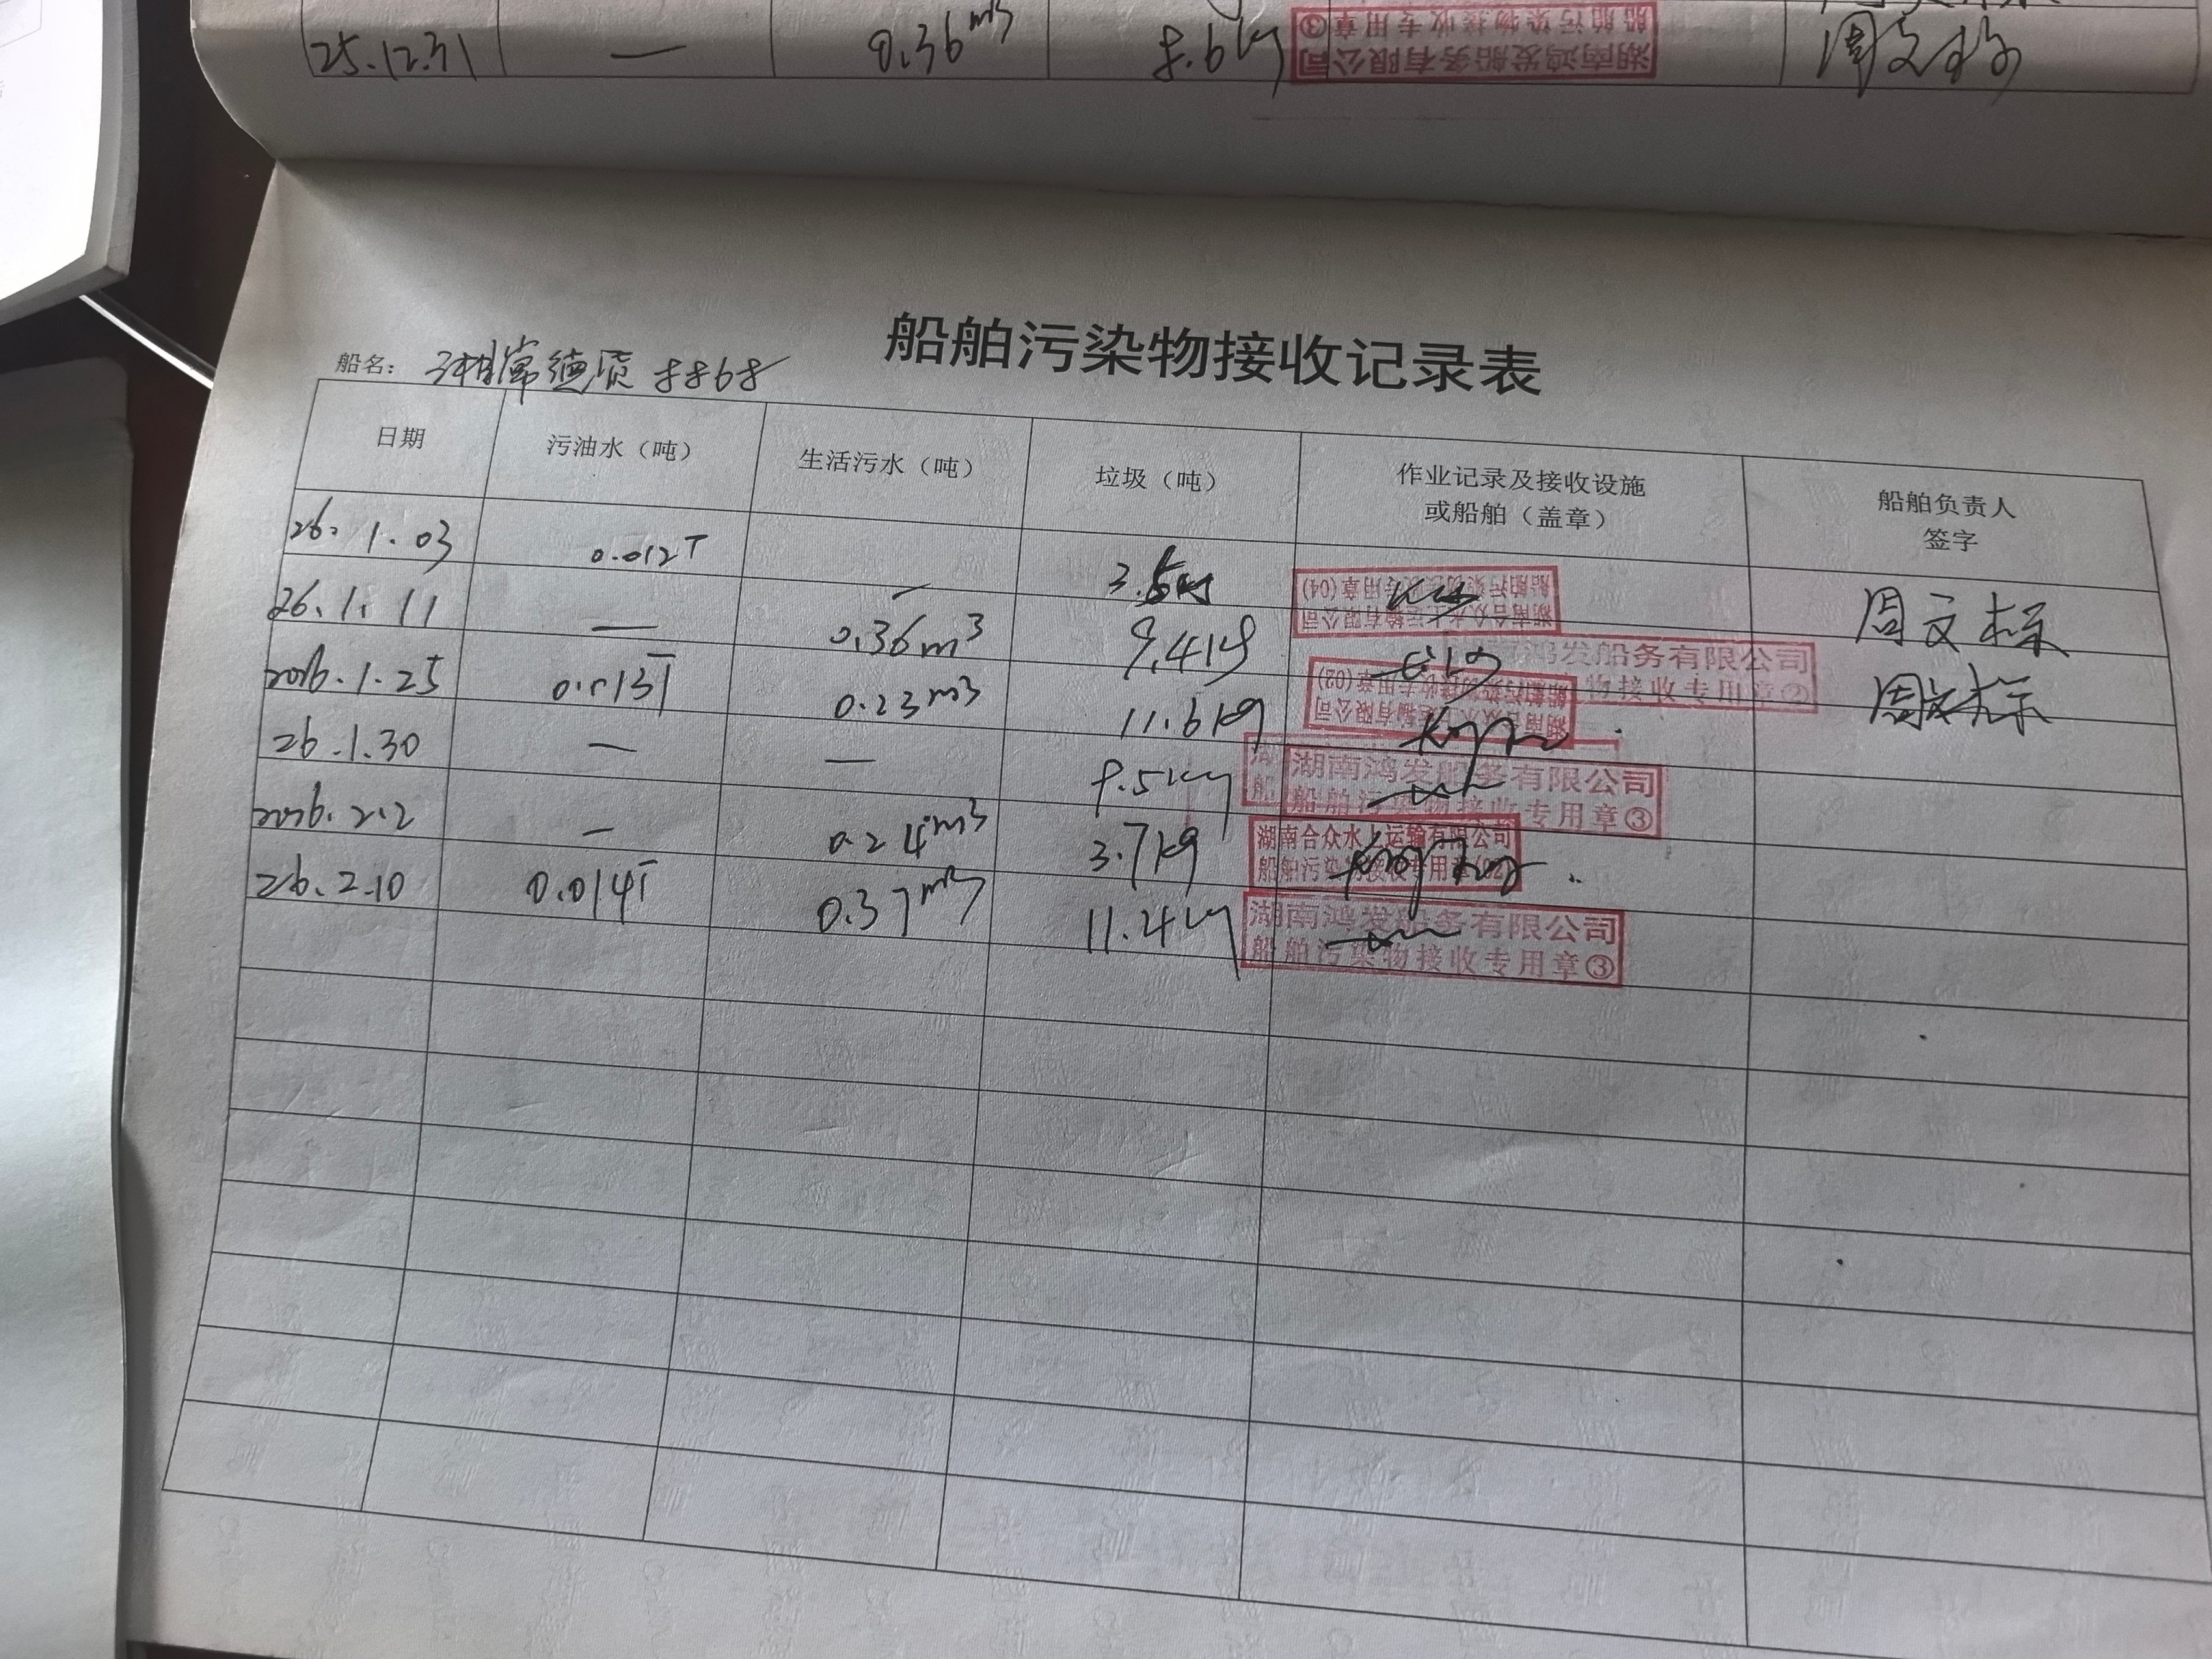 25.12.31 — 0.36m3 8.6kg 湖南鸿发船务有限公司 周文标
船舶污染物接收专用章③
船舶污染物接收记录表
船名：湘常德货8868
日期 污油水（吨） 生活污水（吨） 垃圾（吨） 作业记录及接收设施 船舶负责人
或船舶（盖章） 签字
26.1.03 0.012T — 3.5kg 湖南合众水上运输有限公司 周文标
船舶污染物接收专用章(04)
26.1.11 — 0.36m3 9.4kg 鸿发船务有限公司 周文标
物接收专用章②
2026.1.25 0.013T 0.23m3 11.6kg 湖南合众水上运输有限公司
船舶污染物接收专用章(02)
26.1.30 — — 9.5kg 湖南鸿发船务有限公司
船舶污染物接收专用章③
2026.2.2 — 0.24m3 3.7kg 湖南合众水上运输有限公司
船舶污染物接收专用章(02)
26.2.10 0.014T 0.37m3 11.4kg 湖南鸿发船务有限公司
船舶污染物接收专用章③